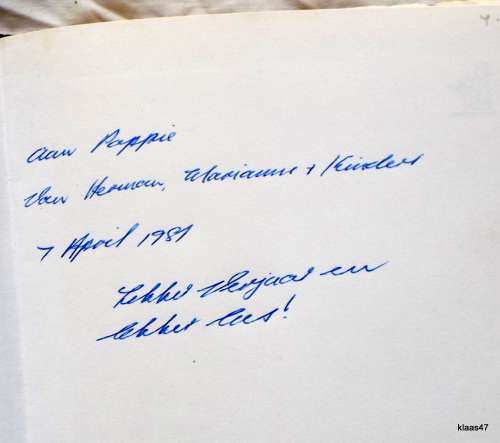 Aan Pappie
Van Herman, Marianne + Kinders
7 April 1981
Lekker Verjaar en
lekker lees!
klaas47